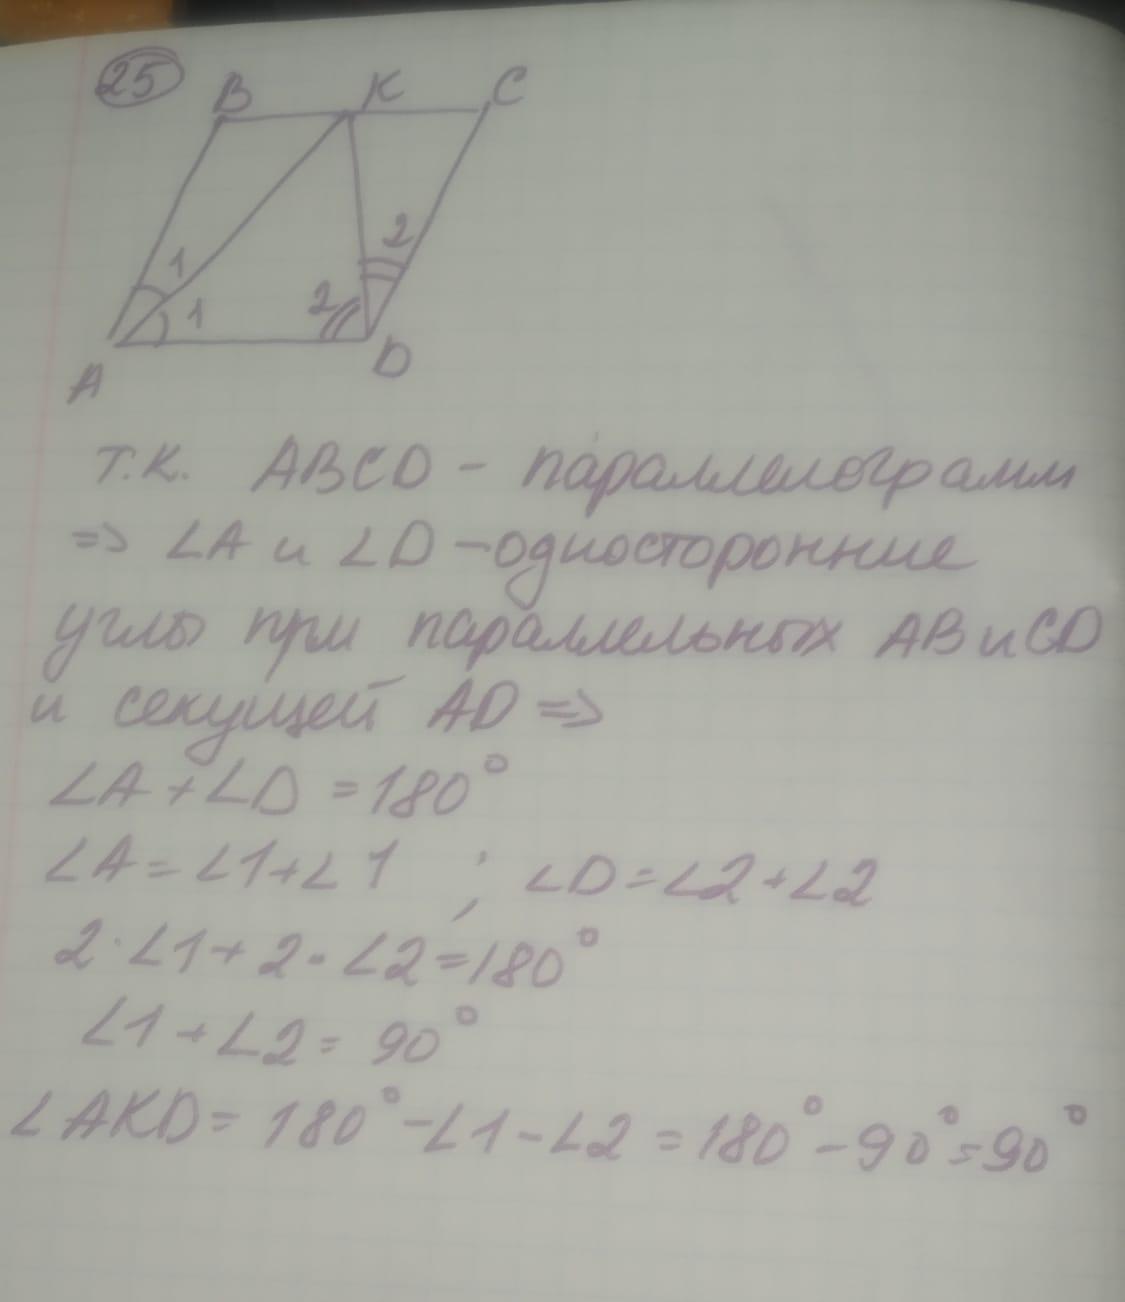 25
B K C
2
1
2
1
A D
т.к. ABCD - параллелограмм
=> ∠A и ∠D - односторонние
углы при параллельных AB и CD
и секущей AD =>
∠A + ∠D = 180°
∠A = ∠1 + ∠1 ; ∠D = ∠2 + ∠2
2·∠1 + 2·∠2 = 180°
∠1 + ∠2 = 90°
∠AKD = 180° - ∠1 - ∠2 = 180° - 90° = 90°